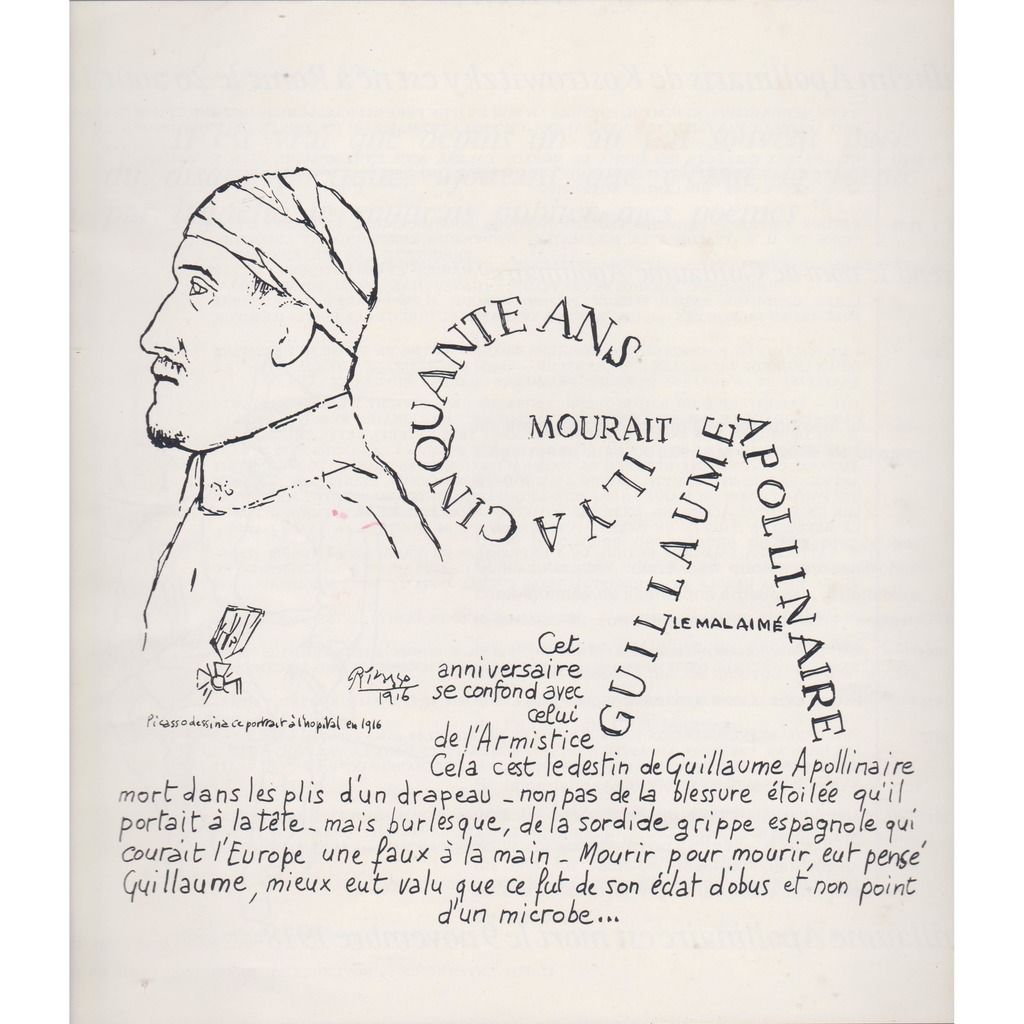 CINQUANTE ANS
IL Y A
MOURAIT
GUILLAUME
APOLLINAIRE
LE MAL AIMÉ
Picasso
1916
Picasso dessina ce portrait à l'hopital en 1916
Cet
anniversaire
se confond avec
celui
de l'Armistice
Cela c'est le destin de Guillaume Apollinaire
mort dans les plis d'un drapeau - non pas de la blessure étoilée qu'il
portait à la tête - mais burlesque, de la sordide grippe espagnole qui
courait l'Europe une faux à la main - Mourir pour mourir, eut pensé
Guillaume, mieux eut valu que ce fut de son éclat d'obus et non point
d'un microbe...